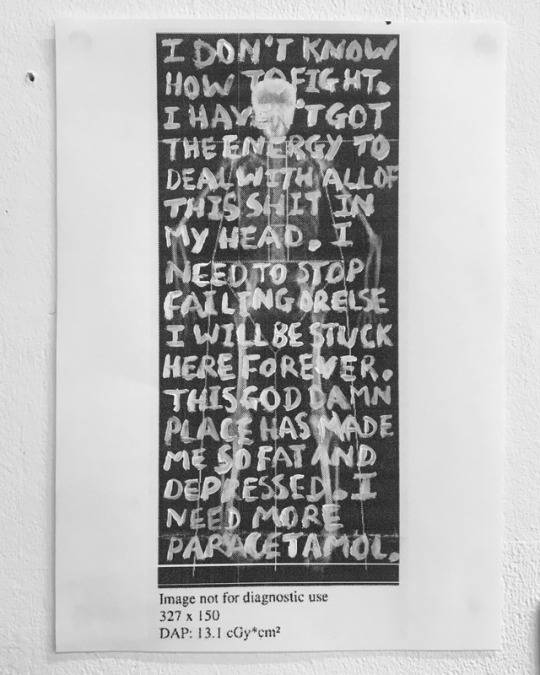 I DON'T KNOW
HOW TO FIGHT.
I HAVEN'T GOT
THE ENERGY TO
DEAL WITH ALL OF
THIS SHIT IN
MY HEAD. I
NEED TO STOP
FAILING OR ELSE
I WILL BE STUCK
HERE FOREVER.
THIS GOD DAMN
PLACE HAS MADE
ME SO FAT AND
DEPRESSED. I
NEED MORE
PARACETAMOL.
Image not for diagnostic use
327 x 150
DAP: 13.1 cGy*cm²